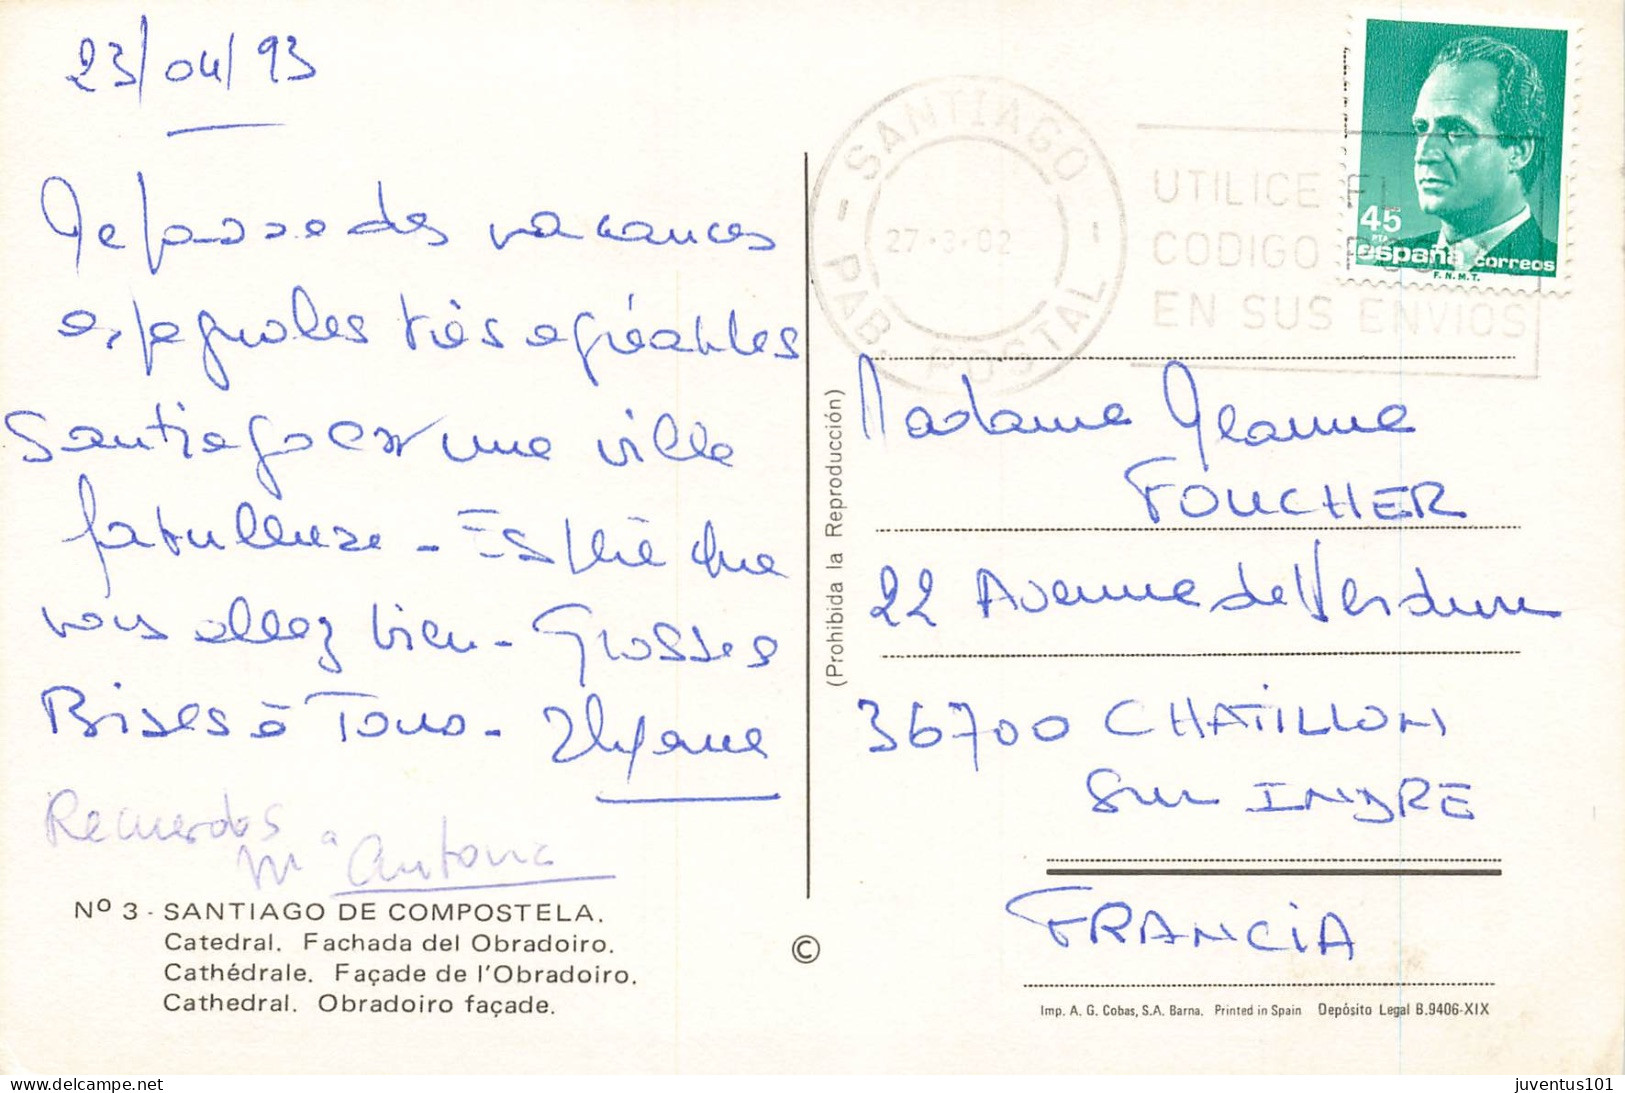 23/04/93
Je passe des vacances
espagnoles très agréables
Santiago est une ville
fabuleuse - Espère que
vous allez bien - Grosses
Bises à Tous -
Recuerdos
Mª Antonia
Nº 3 - SANTIAGO DE COMPOSTELA.
Catedral. Fachada del Obradoiro.
Cathédrale. Façade de l'Obradoiro.
Cathedral. Obradoiro façade.
(Prohibida la Reproducción)
©
SANTIAGO
27·3·02
PAB. POSTAL
UTILICE EL
CODIGO POSTAL
EN SUS ENVIOS
45
PTA
españa correos
F.N.M.T.
Madame Jeanne
FOUCHER
22 Avenue de Verdun
36700 CHATILLON
sur INDRE
FRANCIA
Imp. A. G. Cobas, S.A. Barna. Printed in Spain Depósito Legal B.9406-XIX
delcampe.net
juventus101